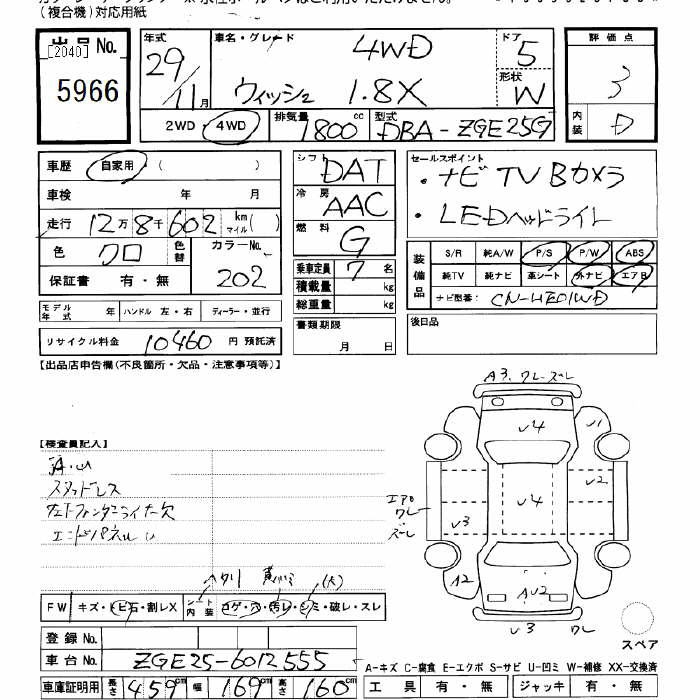 (複合機)対応用紙
出品No.
[2040]
5966
年式 29/11月
車名・グレード 4WD
ウィッシュ 1.8X
ドア 5
形状 W
2WD 4WD
排気量 1800 cc
型式 DBA-ZGE25G
評価点 3
内装 D
車歴 自家用・( )
車検 年 月
走行 12万8千602 km マイル( )
色 クロ 色替
カラーNo. 202
保証書 有・無
シフト DAT
冷房 AAC
燃料 G
乗車定員 7 名
積載量 kg
総重量 kg
セールスポイント
・ナビ TV Bカメラ
・LEDヘッドライト
装備品
S/R 純A/W P/S P/W ABS
純TV 純ナビ 革シート 外ナビ エアB
ナビ型番: CN-HE01WD
モデル年式 年 ハンドル 左・右 ディーラー・並行
リサイクル料金 10460 円 預託済
書類期限
月 日
後日品
【出品店申告欄(不良箇所・欠品・注意事項等)】
【検査員記入】
スタッドレス
エンドパネル U
ヘタリ
FW キズ・トビ石・割レX
シート内装 コゲ・穴・汚レ・シミ・破レ・スレ
登録 No.
車台 No. ZGE25-6012555
車庫証明用 長さ 459 cm 幅 169 cm 高さ 160 cm
A3. ワレ・ズレ
U4
U1
U2
エアロ ワレ ズレ
U4
U3
A2
AU2
U2
U3 ワレ
スペア
A-キズ C-腐食 E-エクボ S-サビ U-凹ミ W-補修 XX-交換済
工具 有・無 ジャッキ 有・無